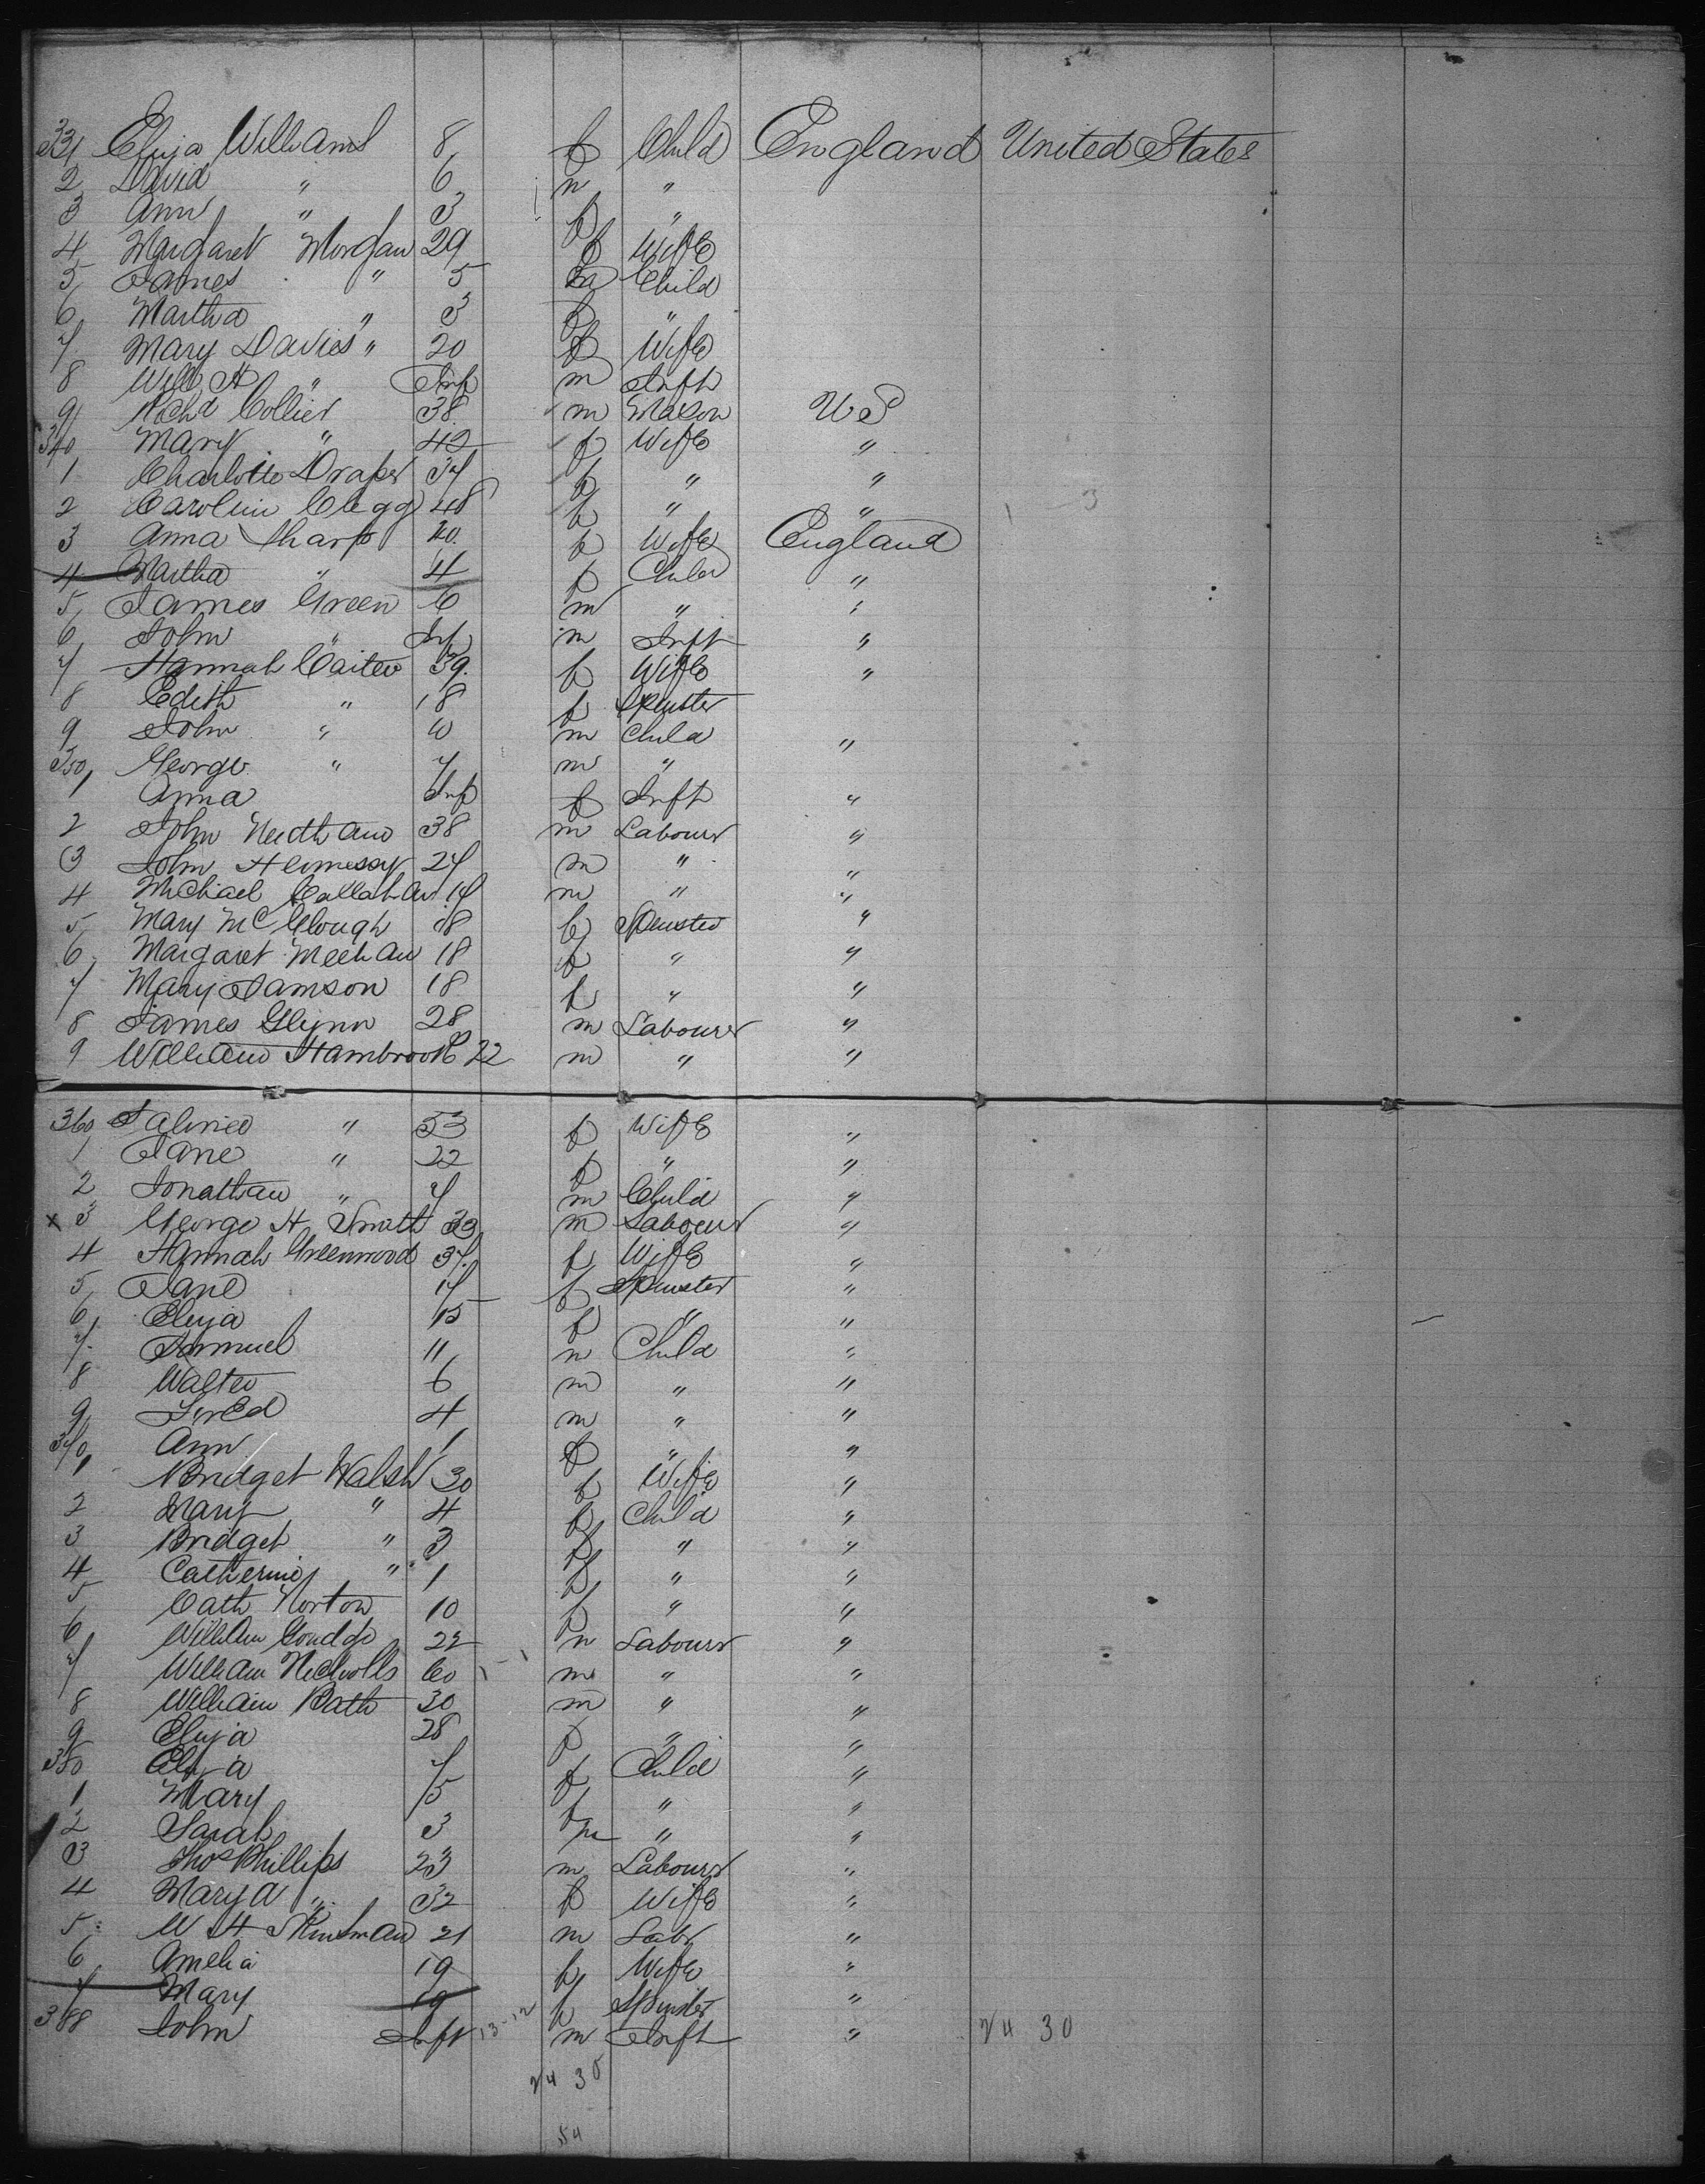 331 Eliza Williams 8 f Child England United States
2 David " 6 m "
3 Ann " 3 f "
4 Margaret Morgan 29 f Wife
5 James " 5 m Child
6 Martha " 3 f "
7 Mary Davies " 20 f Wife
8 Will H " Inf m Inft
9 Richd Collier 38 m Mason U S
340 Mary " 42 f Wife "
1 Charlotte Draper 37 f " "
2 Carolin Clegg 48 f " "
3 Anna Sharp 20 f Wife England
4 Martha " 4 f Child "
5 James Green 6 m " "
6 John " Inf m Inft "
7 Hannah Carter 39 f Wife "
8 Edith " 18 f Spinster
9 John " 10 m Child "
350 George " 7 m "
1 Anna Inf f Inft "
2 John 38 m Labourr "
3 John Hennessy 27 m " "
4 Michael Callahan 17 m " "
5 Mary McClough 18 f Spinster "
6 Margaret Meehan 18 f " "
7 Mary Samson 18 f " "
8 James Glynn 28 m Labourr "
9 William Hambrook 22 m " "
360 " 53 f Wife "
1 Jane " 22 f " "
2 Jonathan " 7 m Child "
x 3 George H. Smith 33 m Labourr "
4 Hannah Greenwood 37 f Wife "
5 Jane 17 f Spinster "
6 Eliza 15 f " "
7 Samuel 11 m Child "
8 Walter 6 m " "
9 Fred 4 m " "
370 Ann 1 f " "
1 Bridget Walsh 30 f Wife "
2 Mary " 4 f Child "
3 Bridget " 3 f " "
4 Catherine " 1 f " "
5 Cath Norton 10 f " "
6 William 22 m Labourr "
7 William Nicholls 60 m " "
8 William Bath 30 m " "
9 Eliza 28 f " "
380 Eliza 7 f Child "
1 Mary 5 f " "
2 Sarah 3 m " "
3 Thos Phillips 23 m Labourr "
4 Mary A " 32 f Wife "
5 W H 21 m Labr "
6 Amelia 19 f Wife "
7 Mary 19 f Spinster "
388 John Inft 13-12 m Inft " 24 30
24 30
54